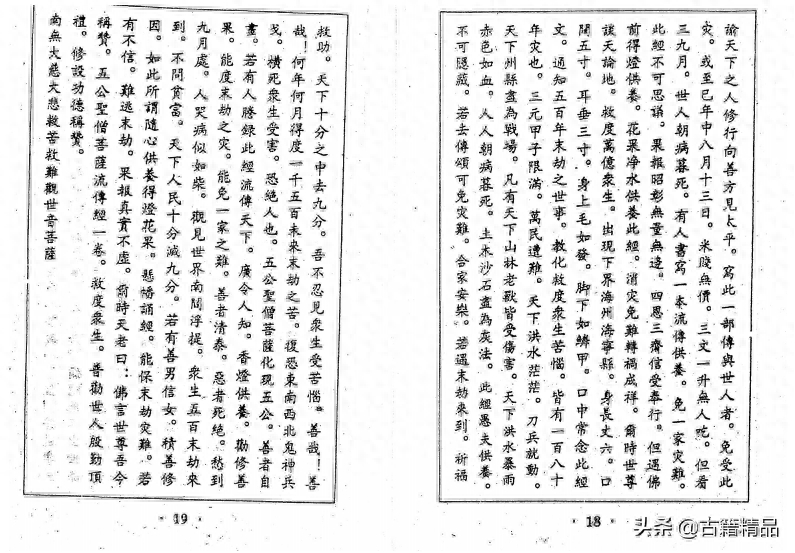 諭天下之人修行向善方見太平。寫此一部傳與世人者。免受此
灾。或至巳年中八月十三日。米賤無價。三文一升無人吃。但看
三九月。世人朝病暮死。有人書寫一本流傳供養。免一家灾難。
此經不可思議。果報昭彰無量無邊。四恩三齋信受奉行。但遇佛
前得燈供養。花果净水供養此經。消灾免難轉禍成祥。爾時世尊
談天論地。救度萬億衆生。出現下界海州海寧縣。身長丈六。口
闊五寸。耳垂三寸。身上毛如發。脚下如鱗甲。口中常念此經
文。通知五百年末劫之世事。教化救度衆生苦惱。皆有一百八十
年灾也。三元甲子限滿。萬民遭難。天下洪水茫茫。刀兵就動。
天下州縣盡為戰場。凡有天下山林老獸皆受傷害。天下洪水暴雨
赤色如血。人人朝病暮死。土木沙石盡為灰法。此經愚夫供養。
不可隱藏。若去傳頌可免灾難。合家安樂。若遇末劫來到。祈福
· 18 ·
救助。天下十分之中去九分。吾不忍見衆生受苦惱。善哉！善
哉！何年何月得度一千五百未來末劫之苦。復恐東南西北鬼神兵
戈。橫死衆生受害。恐絕人也。五公聖僧菩薩化現五公。善者自
畫。若有人謄録此經流傳天下。廣令人知。香燈供養。勸修善
果。能度末劫之灾。能免一家之難。善者清泰。惡者死絕。愁到
九月處。人哭病似如柴。觀見世界南閻浮提。衆生五百末劫來
到。不問貧富。天下人民十分減九分。若有善男信女。積善修
因。如此所謂隨心供養得燈花果。懸幡誦經。能保末劫灾難。若
有不信。難逃末劫。果報真實不虛。爾時天老曰：佛言世尊吾今
稱贊。五公聖僧菩薩流傳經一卷。救度衆生。普勸世人殷勤頂
禮。修設功德稱贊。
南無大慈大悲救苦救難觀世音菩薩
· 19 ·
头条 @古籍精品